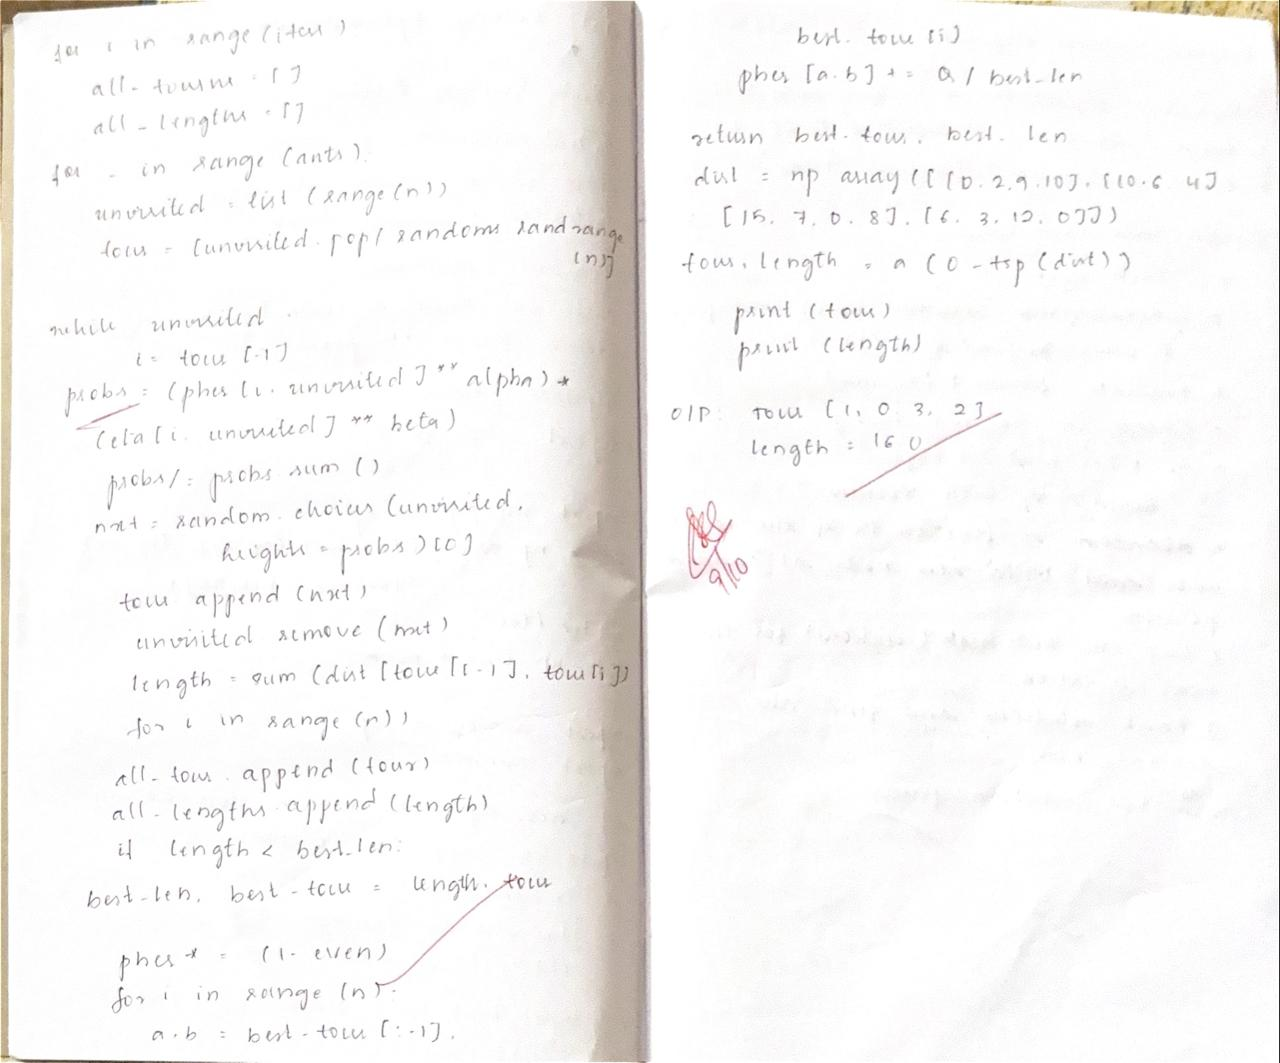 for i in range (iter)
all-tours = [ ]
all-lengths = [ ]
for - in range (ants).
unvisited = list (range(n))
tour = [unvisited.pop( random randrange
(n)]
while unvisited.
i = tour [-1]
probs = (pher [i. unvisited ] ** alpha) *
(eta [i. unvisited ] ** beta)
probs/= probs sum ()
nxt = random. choices (unvisited,
heights = probs ) [0]
tour append (nxt)
unvisited remove (nxt)
length = sum (dist [tour [i-1], tour[i])
for i in range (n))
all- tour . append (tour)
all. lengths append (length)
if length < best-len:
best-len, best-tour = length. tour
pher * = (1- even)
for i in range (n).
a.b = best-tour [:-1].
best. tour [i]
pher [a.b] + = Q / best-len
return best. tour, best. len
dist = np array ([ [0. 2. 9. 10]. [10. 6 4]
[15. 7. 0. 8]. [6. 3. 12. 0]])
tour, length = a (0-tsp (dist))
print (tour)
print (length)
O/P: tour [1, 0 3, 2]
length = 16 0
9/10